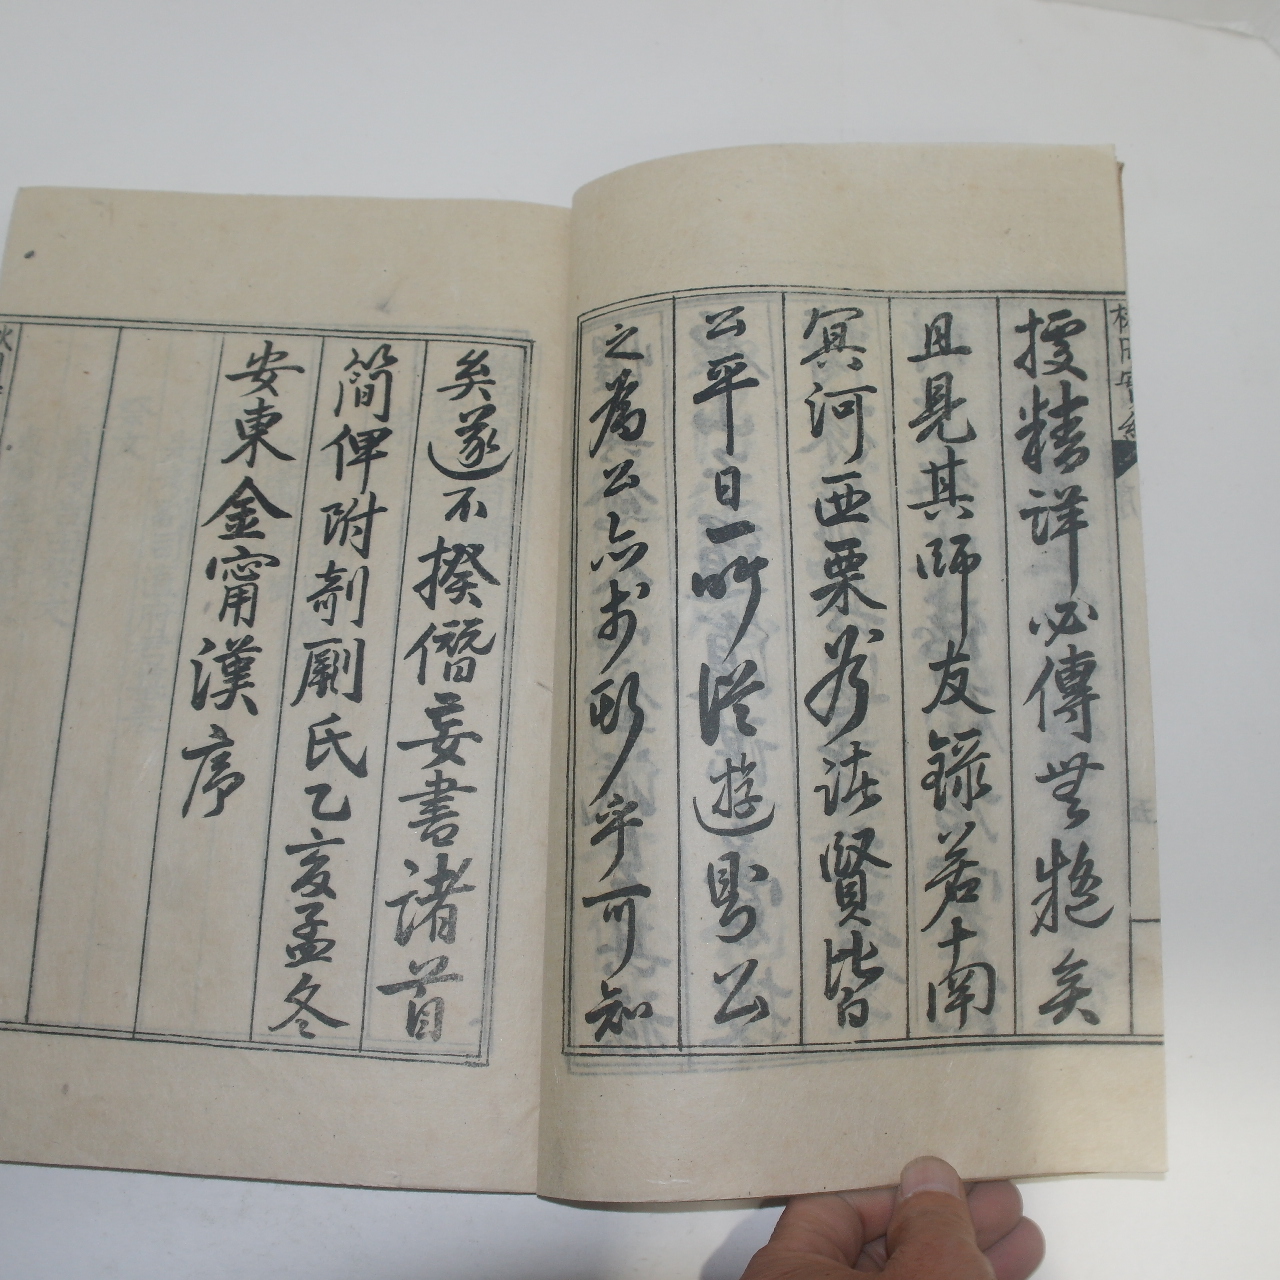 授精詳必傳無疑矣
且見其師友錄若十間
冥河西栗谷諸賢皆
公平日一所從遊則公
之爲公亦於斯乎可知
矣遂不揆僭妄書諸首
簡俾附剞劂氏乙亥孟冬
安東金甯漢序